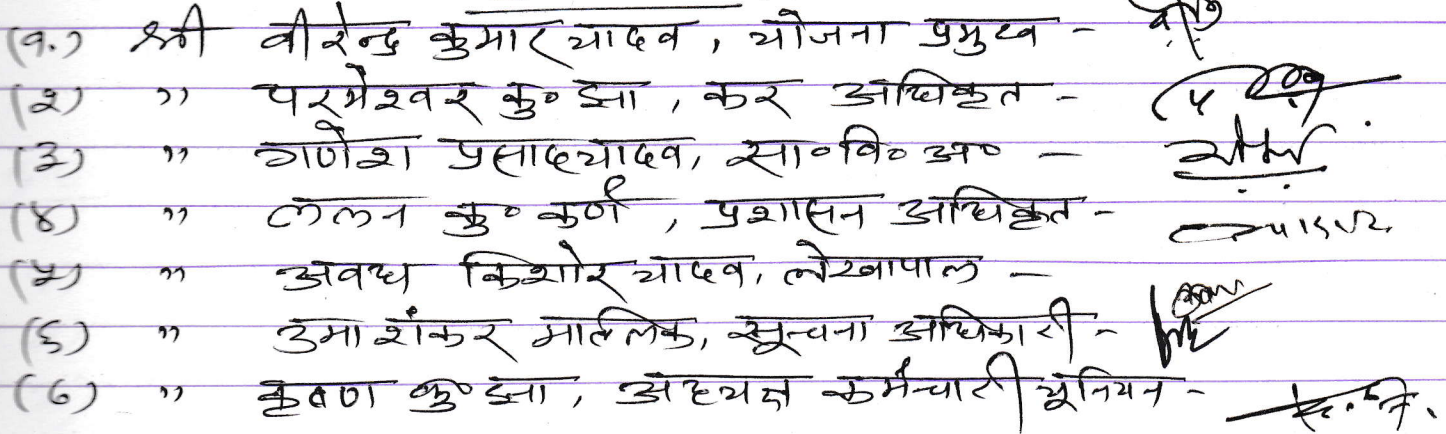 (१.) श्री वीरेन्द्र कुमार यादव, योजना प्रमुख -
(२) ,, परमेश्वर कु० झा, कर अधिकृत -
(३) ,, गणेश प्रसाद यादव, सा० वि० अ० -
(४) ,, ललन कु० कर्ण, प्रशासन अधिकृत -
(५) ,, अवध किशोर यादव, लेखापाल -
(६) ,, उमा शंकर मल्लिक, सूचना अधिकारी -
(७) ,, कृष्ण कु० झा, अध्यक्ष कर्मचारी यूनियन -